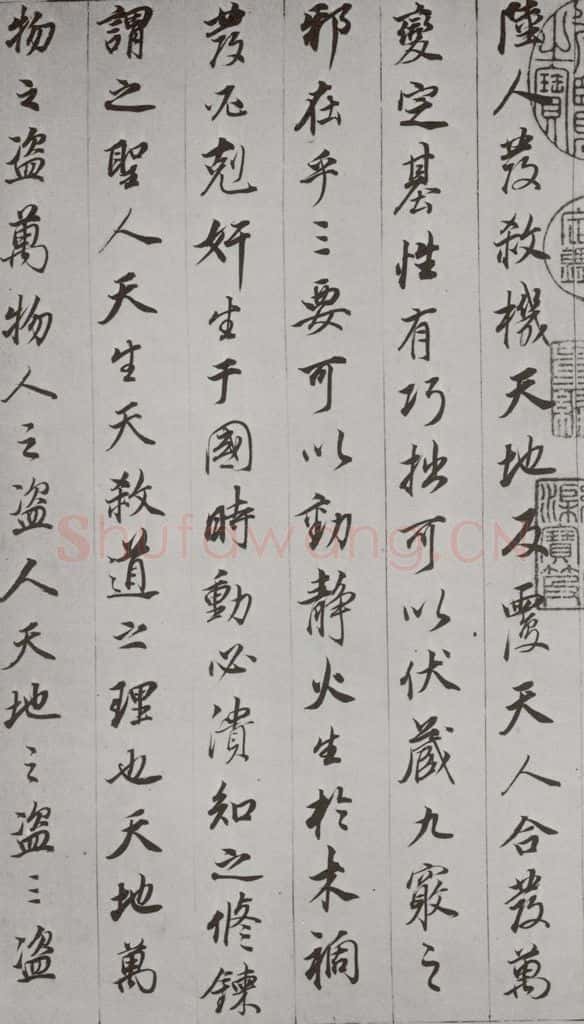 陸人發殺機天地反覆天人合發萬
變定基性有巧拙可以伏藏九竅之
邪在乎三要可以動靜火生於木禍
發必剋奸生于國時動必潰知之修鍊
謂之聖人天生天殺道之理也天地萬
物之盜萬物人之盜人天地之盜三盜
Shufawang.CN